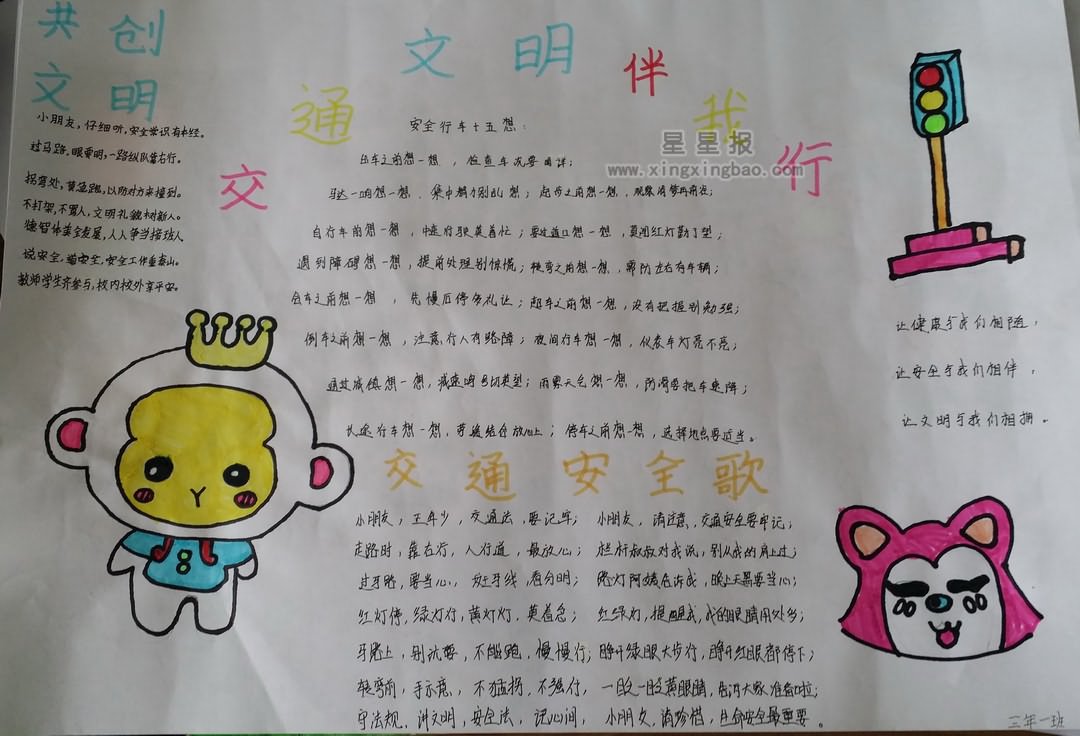 共创
文明
小朋友，仔细听，安全常识有本经。
过马路，眼要明，一路纵队靠右行。
拐弯处，莫急跑，以防对方来撞到。
不打架，不骂人，文明礼貌树新人。
德智体美全发展，人人争当接班人。
说安全，道安全，安全工作重泰山。
教师学生齐参与，校内校外享平安。
交通文明伴我行
星星报
www.xingxingbao.com
安全行车十五想：
出车之前想一想，检查车况要周详；
马达一响想一想，集中精力别乱想；起步之前想一想，观察清楚再前去；
自行车前想一想，中途行驶莫着忙；要过道口想一想，莫闯红灯勤了望；
遇到障碍想一想，提前处理别惊慌；转弯之前想一想，需防左右有车辆；
会车之前想一想，先慢后停多礼让；超车之前想一想，没有把握别勉强；
倒车之前想一想，注意行人有路障；夜间行车想一想，仪表车灯亮不亮；
通过城镇想一想，减速鸣号切莫望；雨雾天气想一想，防滑要把车速降；
长途行车想一想，劳逸结合放心上；停车之前想一想，选择地点要适当。
交通安全歌
小朋友，正年少，交通法，要记牢；小朋友，请注意，交通安全要牢记；
走路时，靠右行，人行道，最放心；栏杆叔叔对我说，别从我的肩上过；
过马路，要当心，斑马线，看分明；路灯阿姨告诉我，晚上天黑要当心；
红灯停，绿灯行，黄灯灯，莫着急；红绿灯，提醒我，我的眼睛用处多；
马路上，别玩耍，不能跑，慢慢行；睁开绿眼大步行，睁开红眼都停下；
转弯前，手示意，不猛拐，不强行，一眨一眨黄眼睛，告诉大家准备啦；
守法规，讲文明，安全法，记心间，小朋友，请珍惜，生命安全最重要。
让健康与我们相随，
让安全与我们相伴，
让文明与我们相拥。
三年一班